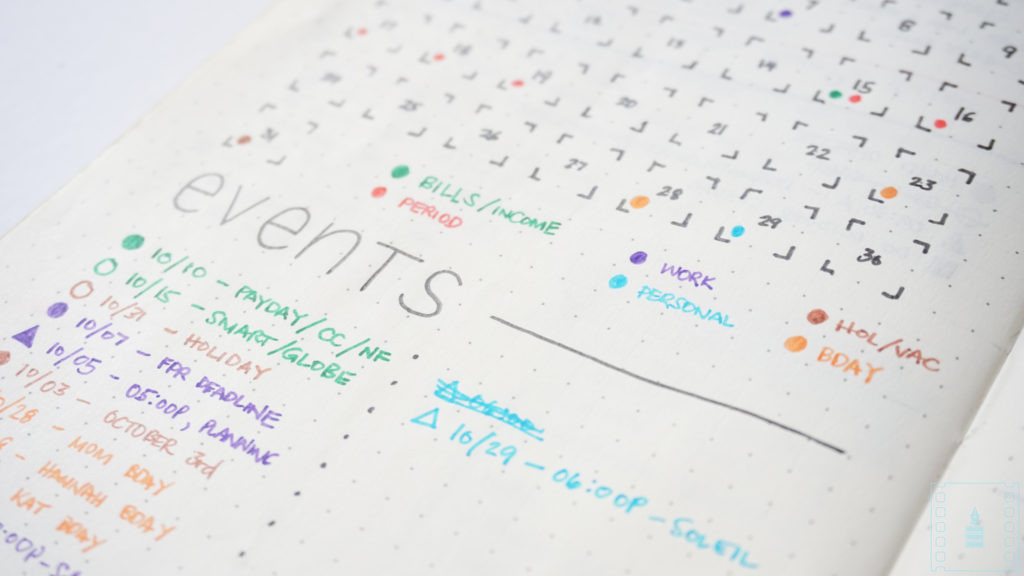 7
6
9
13
14
15
16
18
19
20
21
22
23
25
26
27
28
29
30
31
events
BILLS/INCOME
PERIOD
WORK
PERSONAL
HOL/VAC
BDAY
10/10 - PAYDAY/CC/NF
10/15 - SMART/GLOBE
10/31 - HOLIDAY
10/07 - FPR DEADLINE
10/05 - 05:00P, PLANNING
10/03 - OCTOBER 3rd
/28 - MOM BDAY
- HANNAH BDAY
KAT BDAY
10/29 - 06:00P - SOLEIL